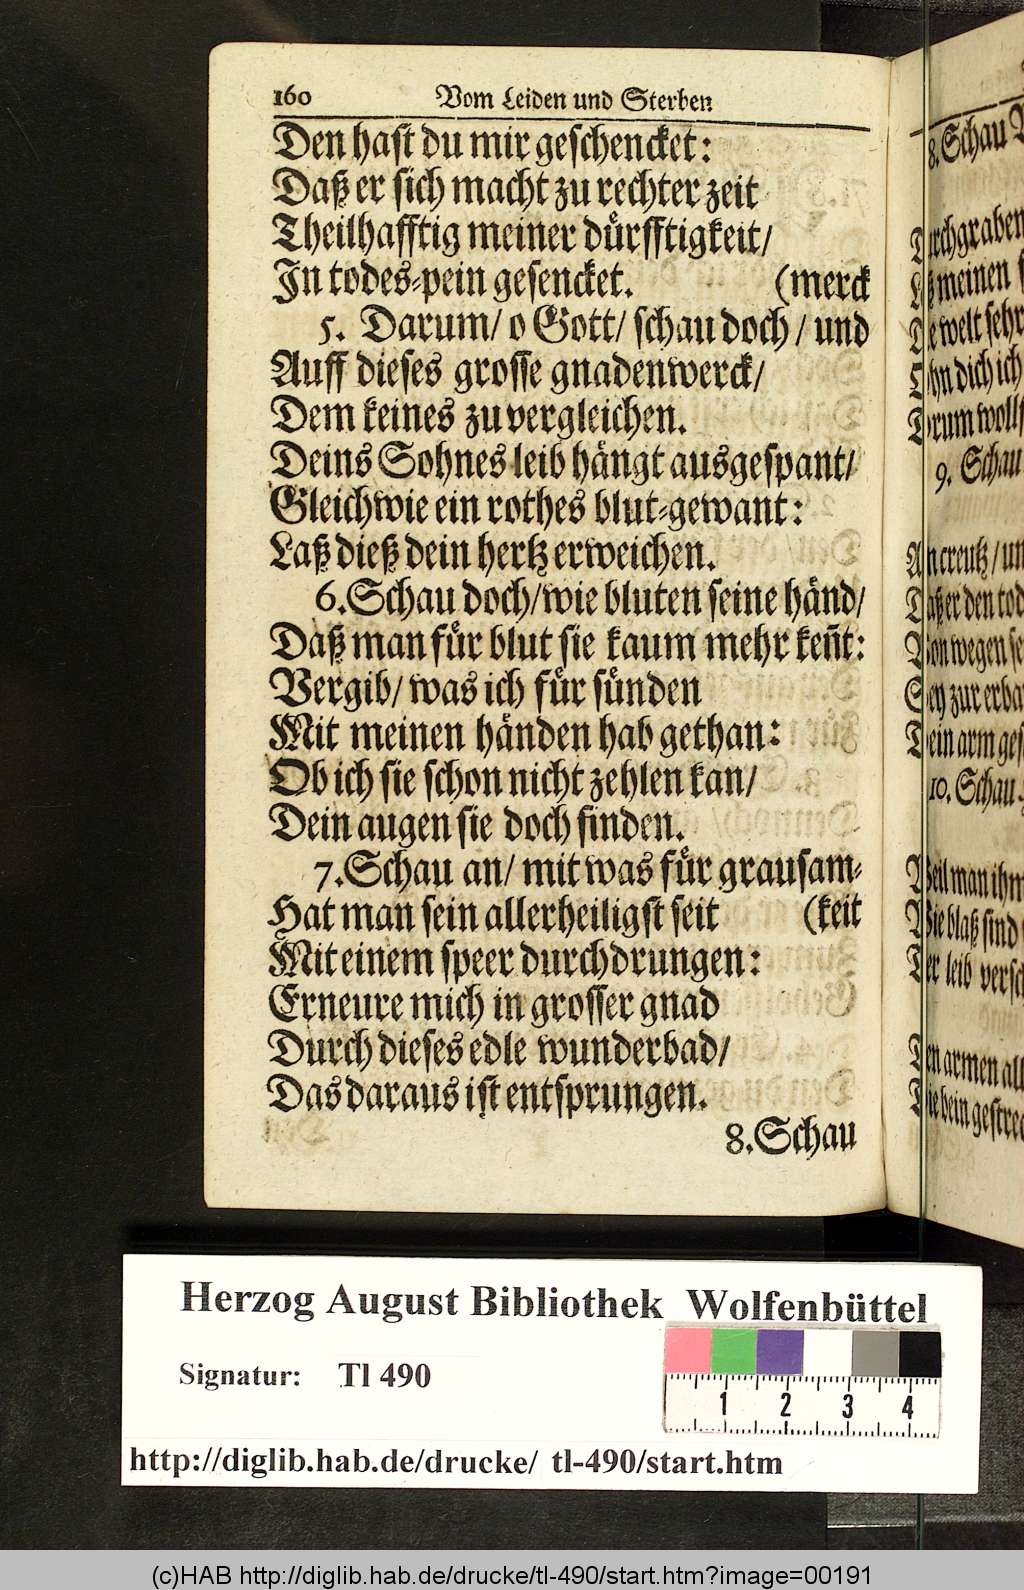 160 Vom Leiden und Sterben
Den hast du mir geschencket:
Daß er sich macht zu rechter zeit
Theilhafftig meiner dürfftigkeit/
In todes-pein gesencket. (merck
5. Darum/ o Gott/ schau doch/ und
Auff dieses grosse gnadenwerck/
Dem keines zu vergleichen.
Deins Sohnes leib hängt ausgespant/
Gleichwie ein rothes blut-gewant:
Laß dieß dein hertz erweichen.
6. Schau doch/ wie bluten seine händ/
Daß man für blut sie kaum mehr keñt:
Vergib/ was ich für sünden
Mit meinen händen hab gethan:
Ob ich sie schon nicht zehlen kan/
Dein augen sie doch finden.
7. Schau an/ mit was für grausam-
Hat man sein allerheiligst seit (keit
Mit einem speer durchdrungen:
Erneure mich in grosser gnad
Durch dieses edle wunderbad/
Das daraus ist entsprungen.
8. Schau
8. Schau
meinen
welt sehr
dich ich
9. Schau
creutz/
er den
wegen
zur
arm
10. Schau
man ihm
blaß sind
leib
armen
bein
Herzog August Bibliothek Wolfenbüttel
Signatur: Tl 490
1 2 3 4
http://diglib.hab.de/drucke/ tl-490/start.htm
(c)HAB http://diglib.hab.de/drucke/tl-490/start.htm?image=00191